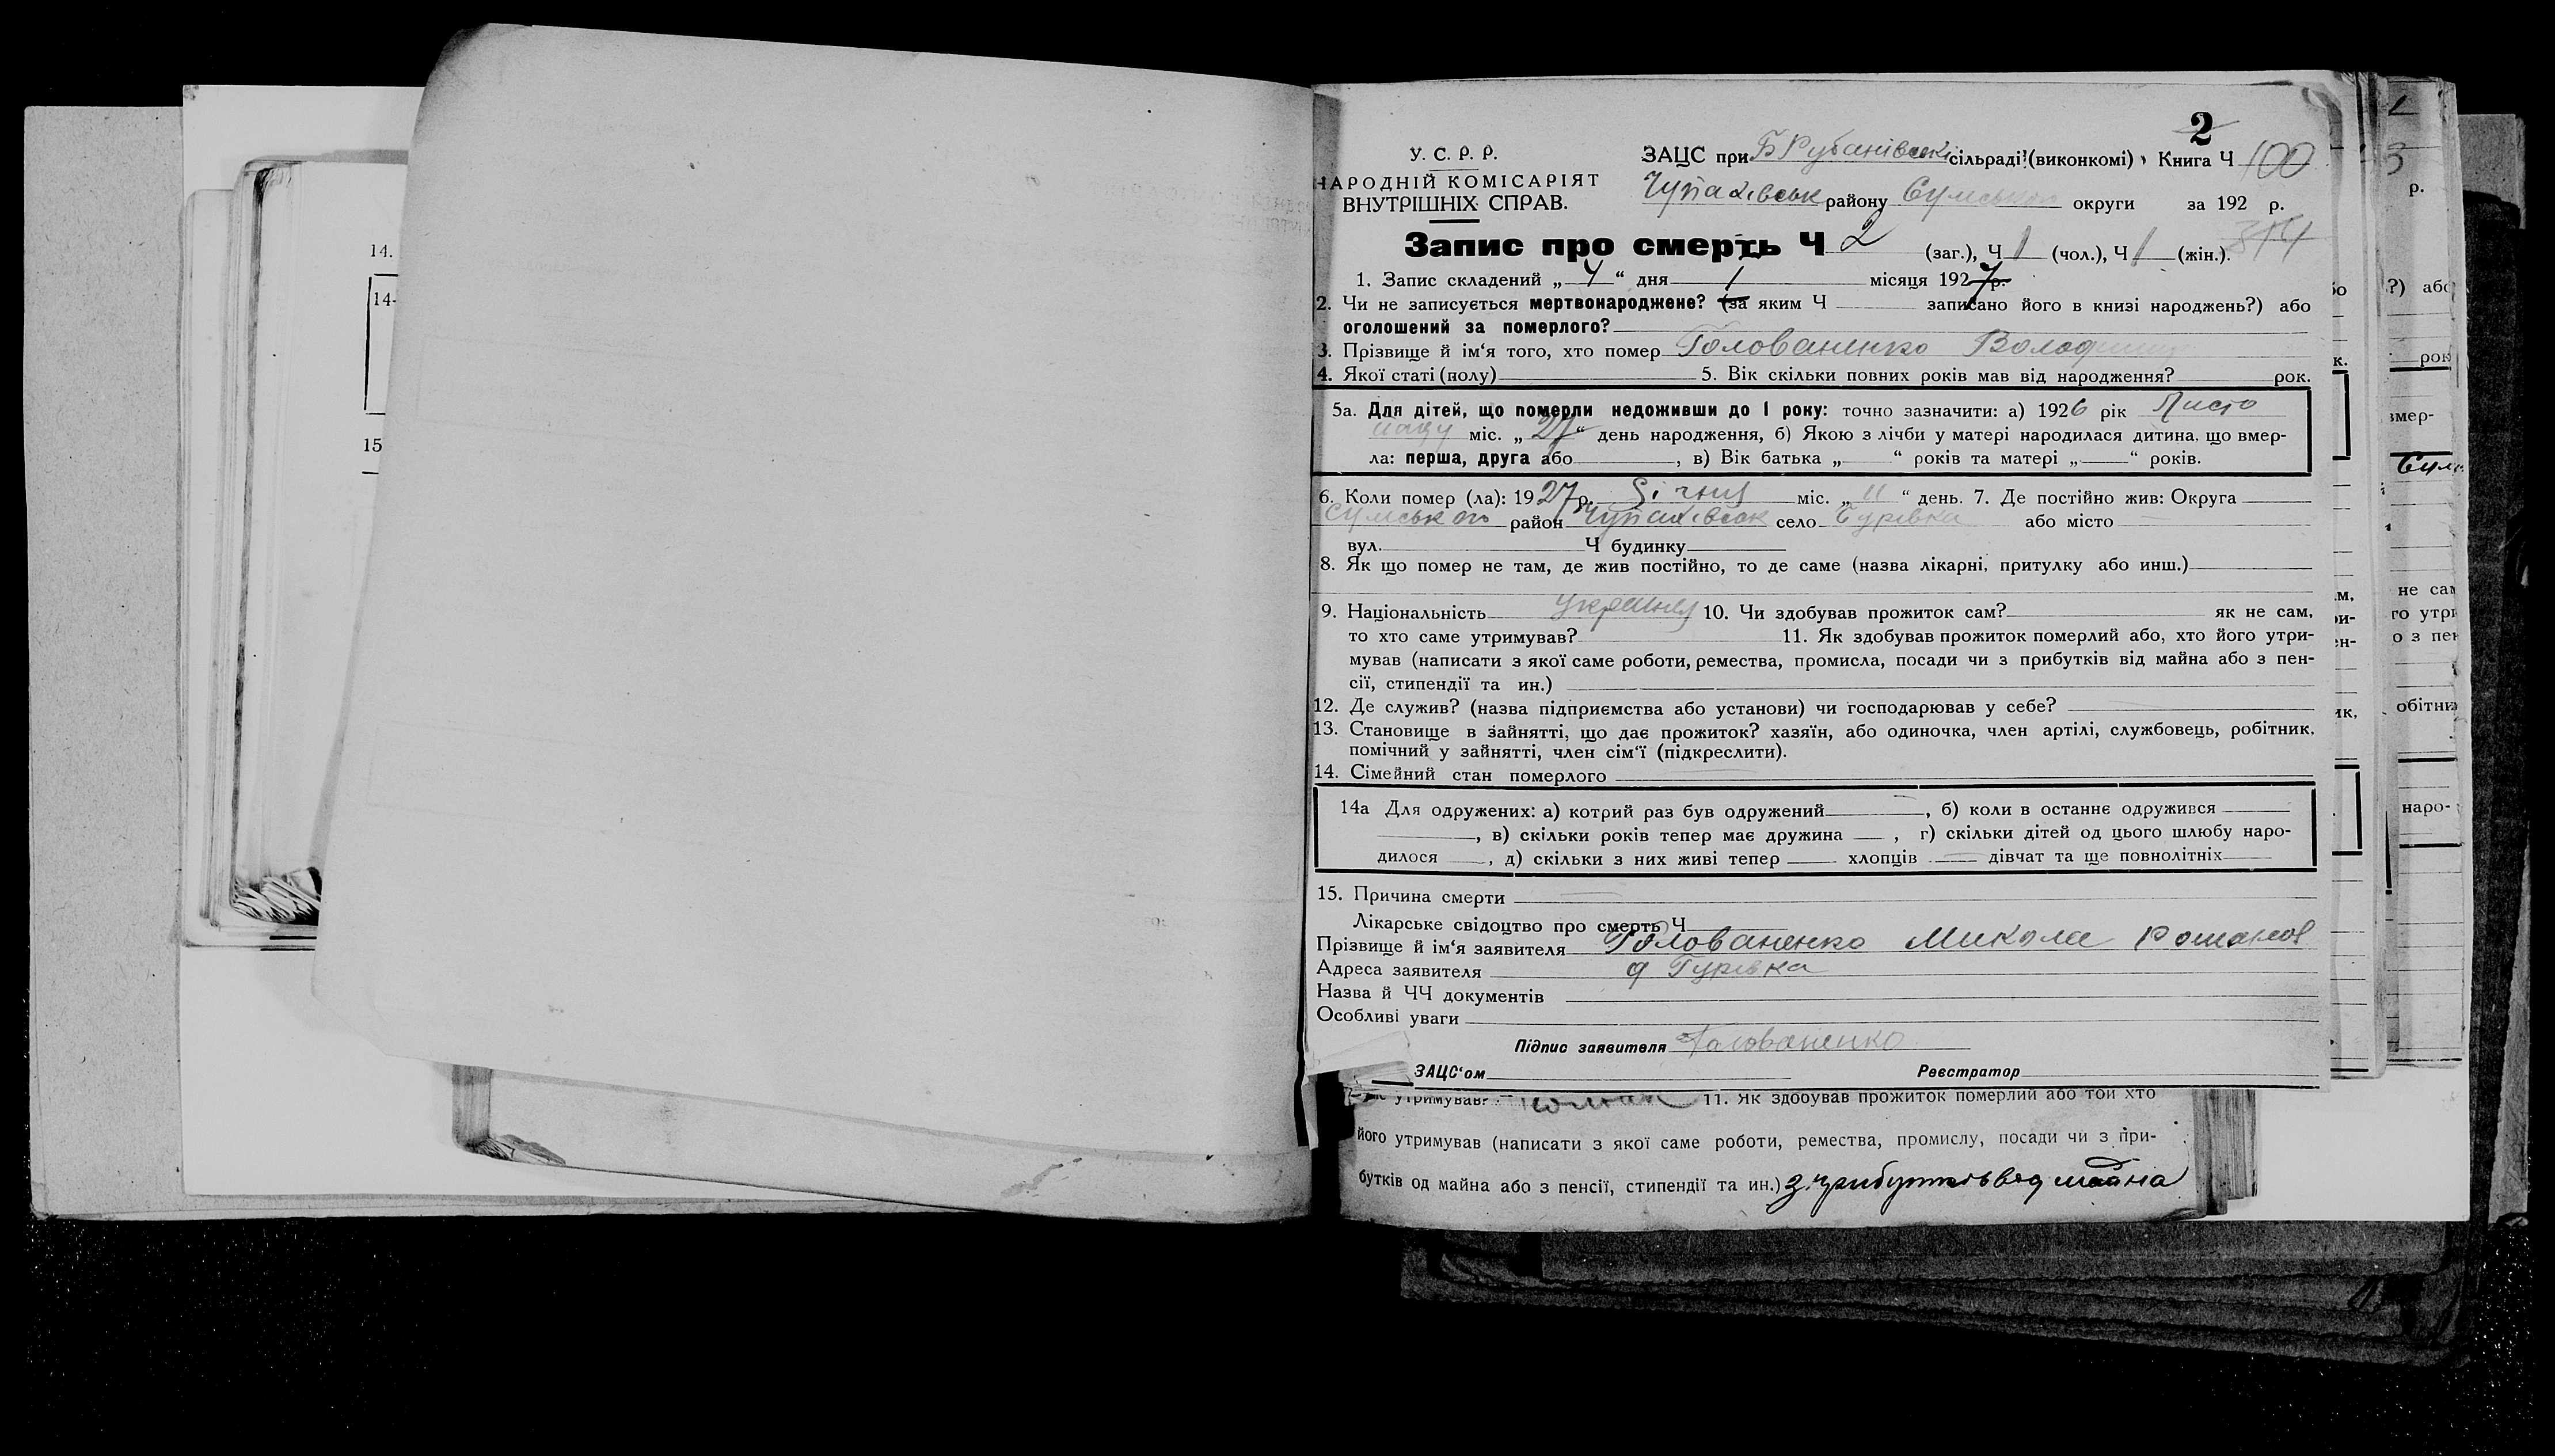 14.
14-
15
2
У. С. Р. Р.
НАРОДНІЙ КОМІСАРІЯТ
ВНУТРІШНІХ СПРАВ.
ЗАЦС при Б Рубанівські сільраді (виконкомі) Книга Ч 100
Чупахівськ району Сумської округи за 192 р.
314
Запис про смерть Ч 2 (заг.), Ч 1 (чол.), Ч 1 (жін.).
1. Запис складений „ 4 “ дня 1 місяця 1927 р.
2. Чи не записується мертвонароджене? (за яким Ч записано його в книзі народжень?) або
оголошений за померлого?
3. Прізвище й ім‘я того, хто помер Голованенко Володимир
4. Якої статі (полу) 5. Вік скільки повних років мав від народження? рок.
5а. Для дітей, що померли недоживши до 1 року: точно зазначити: а) 1926 рік Листо
паду міс. „ 27 “ день народження, б) Якою з лічби у матері народилася дитина, що вмер-
ла: перша, друга або , в) Вік батька „ “ років та матері „ “ років.
6. Коли помер (ла): 1927 р. Січня міс. „ “ день. 7. Де постійно жив: Округа
Сумського район Чупахівськ село Гурівка або місто
вул. Ч будинку
8. Як що помер не там, де жив постійно, то де саме (назва лікарні, притулку або инш.)
9. Національність 10. Чи здобував прожиток сам? як не сам,
то хто саме утримував? 11. Як здобував прожиток померлий або, хто його утри-
мував (написати з якої саме роботи, ремества, промисла, посади чи з прибутків від майна або з пен-
сії, стипендії та ин.)
12. Де служив? (назва підприємства або установи) чи господарював у себе?
13. Становище в зайнятті, що дає прожиток? хазяїн, або одиночка, член артілі, службовець, робітник,
помічний у зайнятті, член сім‘ї (підкреслити).
14. Сімейний стан померлого
14а Для одружених: а) котрий раз був одружений , б) коли в останнє одружився
, в) скільки років тепер має дружина , г) скільки дітей од цього шлюбу наро-
дилося , д) скільки з них живі тепер хлопців дівчат та ще повнолітніх
15. Причина смерти
Лікарське свідоцтво про смерть Ч
Прізвище й ім‘я заявителя Голованенко Микола Романов
Адреса заявителя Гурівка
Назва й ЧЧ документів
Особливі уваги
Підпис заявителя Голованенко
ЗАЦС‘ом Реєстратор
утримував? 11. Як здобував прожиток померлий або той хто
його утримував (написати з якої саме роботи, ремества, промислу, посади чи з при-
бутків од майна або з пенсії, стипендії та ин.) з прибутків від майна
р.
?) або
рок
вмер-
не сам
го утри
о з пен
обітник
наро-